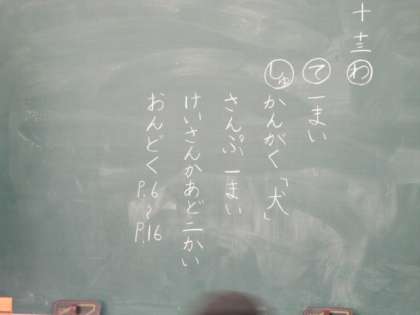 十 十三 わ
て 一まい
しゅ かんがく「犬」
さんぷ 一まい
けいさんかあど二かい
おんどく P.6〜P.16